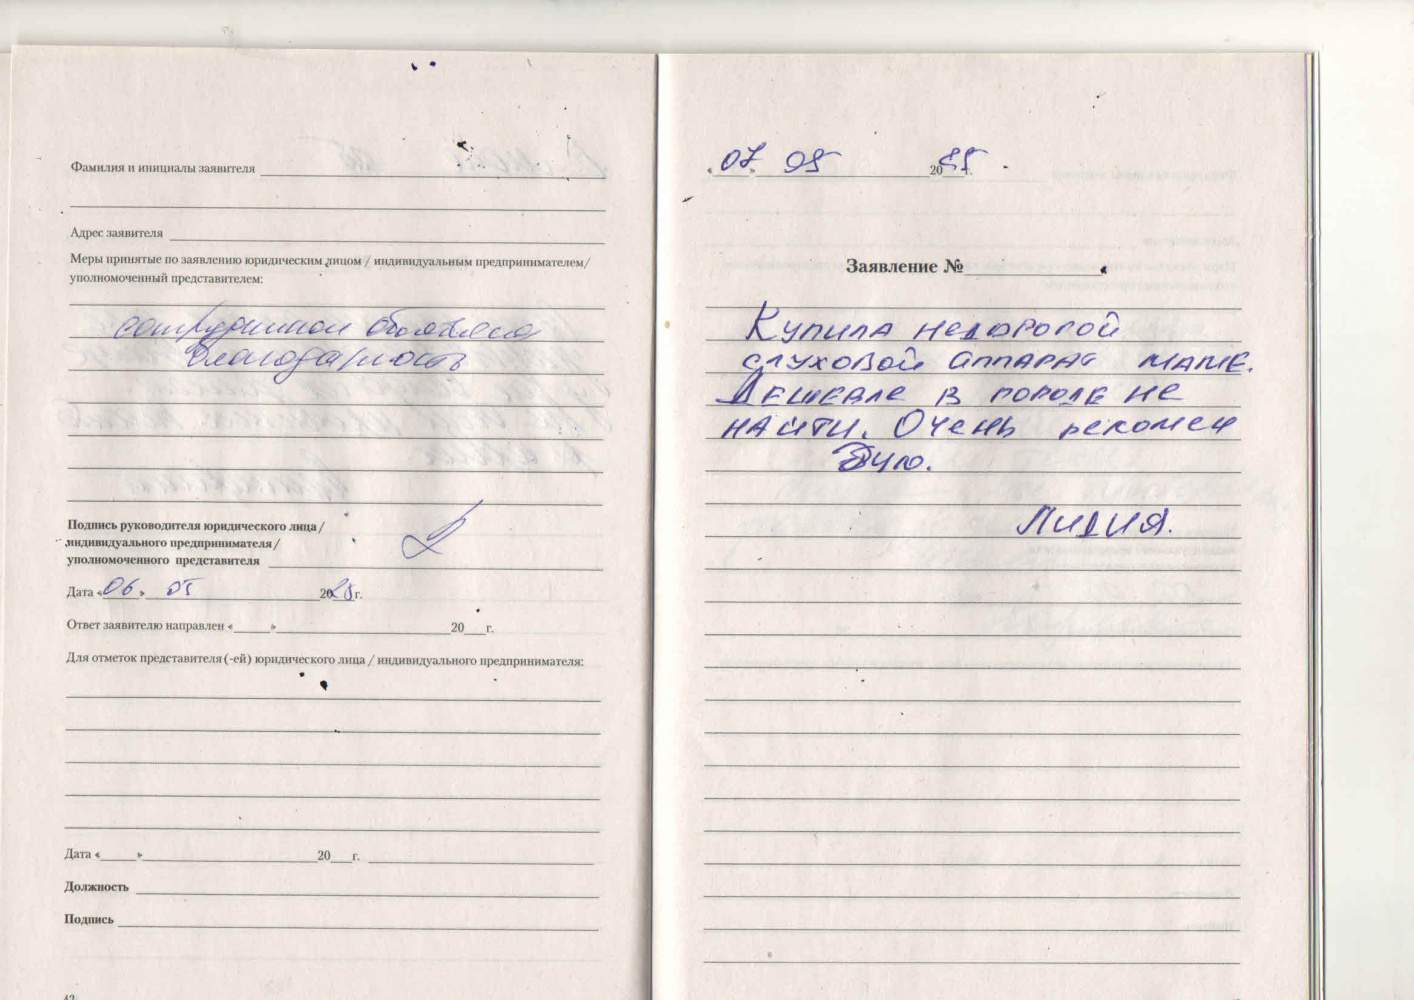 Фамилия и инициалы заявителя
Адрес заявителя
Меры принятые по заявлению юридическим лицом / индивидуальным предпринимателем/
уполномоченный представителем:
сотрудникам объявлена
благодарность
Подпись руководителя юридического лица /
индивидуального предпринимателя /
уполномоченного представителя
Дата «06» 05 2025г.
Ответ заявителю направлен «____»____ 20__г.
Для отметок представителя (-ей) юридического лица / индивидуального предпринимателя:
Дата «____»____ 20__г.
Должность
Подпись
«07» 05 2025г.
Заявление №
Купила недорогой
слуховой аппарат маме.
Дешевле в городе не
найти. Очень рекомен
дую.
Лидия.